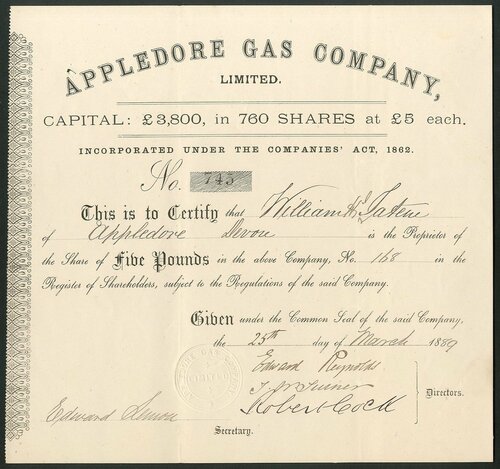 APPLEDORE GAS COMPANY,
LIMITED.
CAPITAL: £3,800, in 760 SHARES at £5 each.
INCORPORATED UNDER THE COMPANIES' ACT, 1862.
No. 745
This is to Certify that William
of Appledore Devon is the Proprietor of
the Share of Five Pounds in the above Company, No. 168 in the
Register of Shareholders, subject to the Regulations of the said Company.
Given under the Common Seal of the said Company,
the 25th day of March 1889
Edward Reynolds
Robert Cock
Directors.
Edward
Secretary.